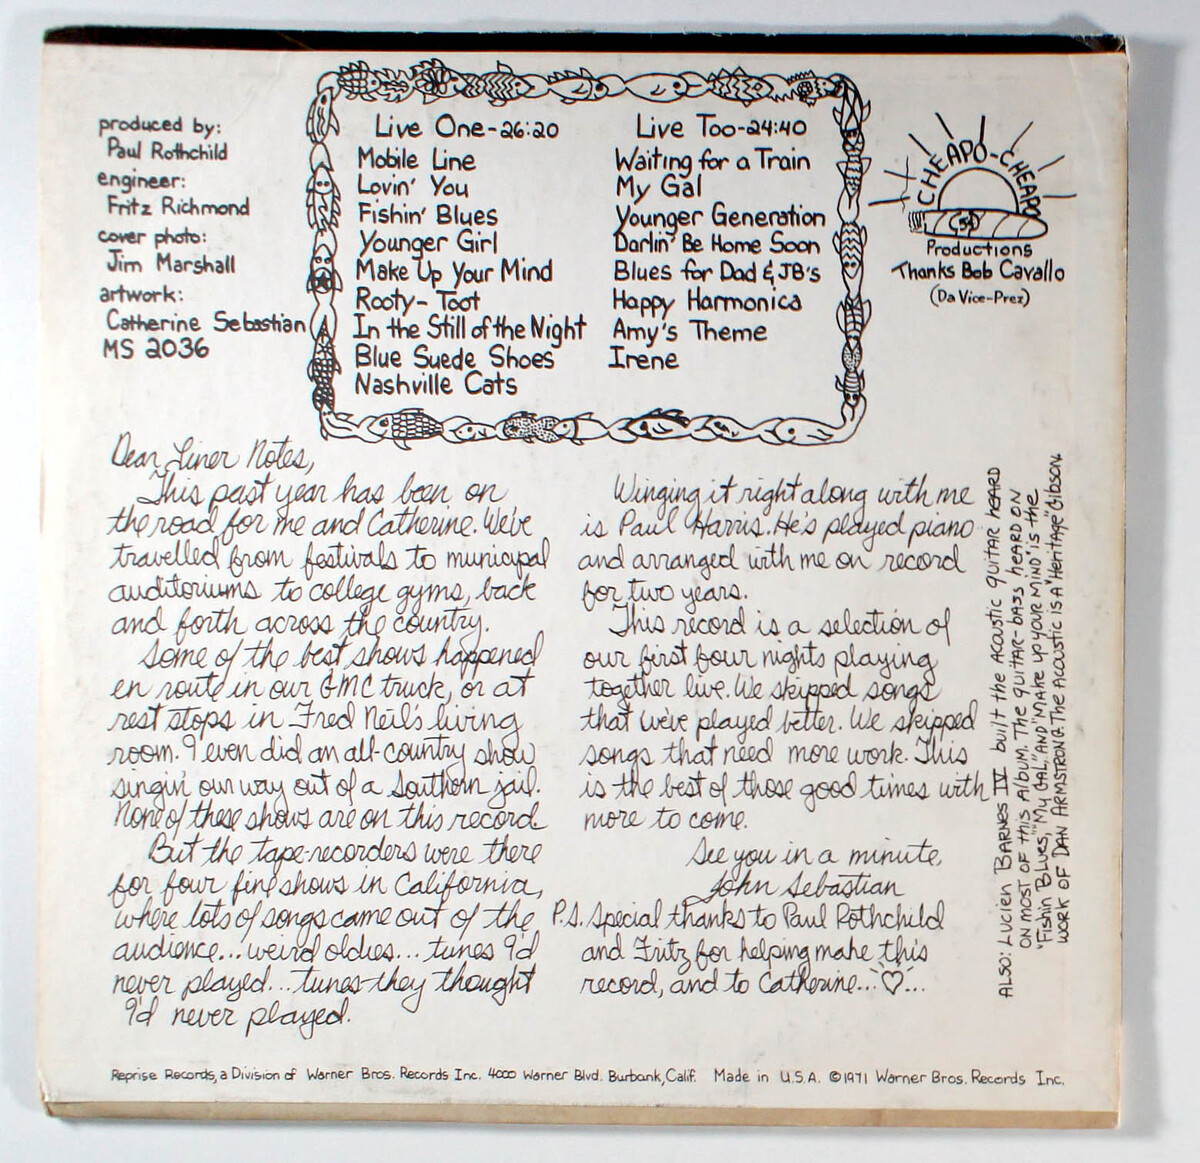 produced by:
Paul Rothchild
engineer:
Fritz Richmond
cover photo:
Jim Marshall
artwork:
Catherine Sebastian
MS 2036
Live One-26:20
Mobile Line
Lovin' You
Fishin' Blues
Younger Girl
Make Up Your Mind
Rooty-Toot
In the Still of the Night
Blue Suede Shoes
Nashville Cats
Live Too-24:40
Waiting for a Train
My Gal
Younger Generation
Darlin' Be Home Soon
Blues for Dad & JB's
Happy Harmonica
Amy's Theme
Irene
CHEAPO-CHEAPO
5¢
Productions
Thanks Bob Cavallo
(Da Vice-Prez)
Dear Liner Notes,
This past year has been on
the road for me and Catherine. We've
travelled from festivals to municipal
auditoriums to college gyms, back
and forth across the country.
Some of the best shows happened
en route in our GMC truck, or at
rest stops in Fred Neil's living
room. I even did an all-country show
singin' our way out of a Southern jail.
None of these shows are on this record
But the tape-recorders were there
for four fine shows in California,
where lots of songs came out of the
audience... weird oldies... tunes I'd
never played... tunes they thought
I'd never played.
Winging it right along with me
is Paul Harris. He's played piano
and arranged with me on record
for two years.
This record is a selection of
our first four nights playing
together live. We skipped songs
that we've played better. We skipped
songs that need more work. This
is the best of those good times with
more to come.
See you in a minute,
John Sebastian
P.S. Special thanks to Paul Rothchild
and Fritz for helping make this
record, and to Catherine...♡...
ALSO: LUCIEN BARNES IV built the ACOUSTIC guitar HEARD
ON MOST OF THIS AlbUM. THE GUITAR-BASS HEARD ON
"FISHIN BLUES," "MY GAL," AND "MAKE UP YOUR MIND" IS THE
WORK OF DAN ARMSTRONG. THE ACOUSTIC IS A "HERITAGE" GIBSON.
Reprise Records, a Division of Warner Bros. Records Inc. 4000 Warner Blvd. Burbank, Calif. Made in U.S.A. ©1971 Warner Bros. Records Inc.